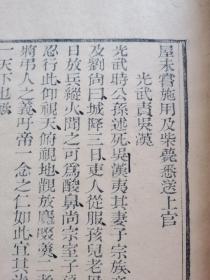 屋未嘗施用及柴薨悉送上官
光武責吳漢
光武時公孫述死吳漢夷其妻子宗族
及劉尚曰城降三日吏人從服孩兒老
日放兵縱火聞之可為酸鼻尚宗室子
忍行此仰視天俯視地觀放麑啜羹二者
將弔人之義乎帝一念之仁如此宜其
一天下也